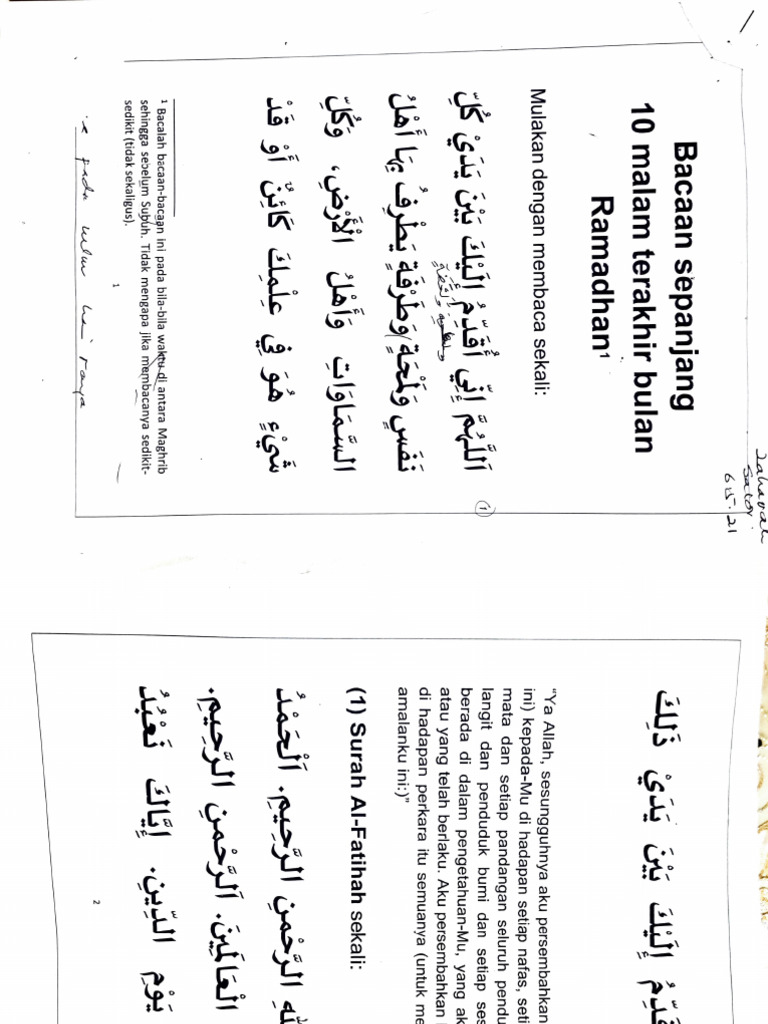 6.5.21
Bacaan sepanjang
10 malam terakhir bulan
Ramadhan¹
Mulakan dengan membaca sekali:
①
اَللَّهُمَّ إِنِّي أُقَدِّمُ إِلَيْكَ بَيْنَ يَدَيْ كُلِّ
نَفَسٍ وَلَمْحَةٍ وَطَرْفَةٍ يَطْرِفُ بِهَا أَهْلُ
السَّمَاوَاتِ وَأَهْلُ الْأَرْضِ، وَكُلِّ
شَيْءٍ هُوَ فِي عِلْمِكَ كَائِنٌ أَوْ قَدْ
¹ Bacalah bacaan-bacaan ini pada bila-bila waktu di antara Maghrib
sehingga sebelum Subuh. Tidak mengapa jika membacanya sedikit-
sedikit (tidak sekaligus).
1
pada
إِلَيْكَ بَيْنَ يَدَيْ ذَلِكَ
"Ya Allah, sesungguhnya aku persembahkan
ini) kepada-Mu di hadapan setiap nafas, seti
mata dan setiap pandangan seluruh pendu
langit dan penduduk bumi dan setiap ses
berada di dalam pengetahuan-Mu, yang ak
atau yang telah berlaku. Aku persembahkan
di hadapan perkara itu semuanya (untuk me
amalanku ini:)"
(1) Surah Al-Fatihah sekali:
الرَّحْمنِ الرَّحِيمِ. اَلْحَمْدُ
الْعَالَمِينَ. اَلرَّحْمنِ الرَّحِيمِ.
يَوْمِ الدِّينِ. إِيَّاكَ نَعْبُدُ
2